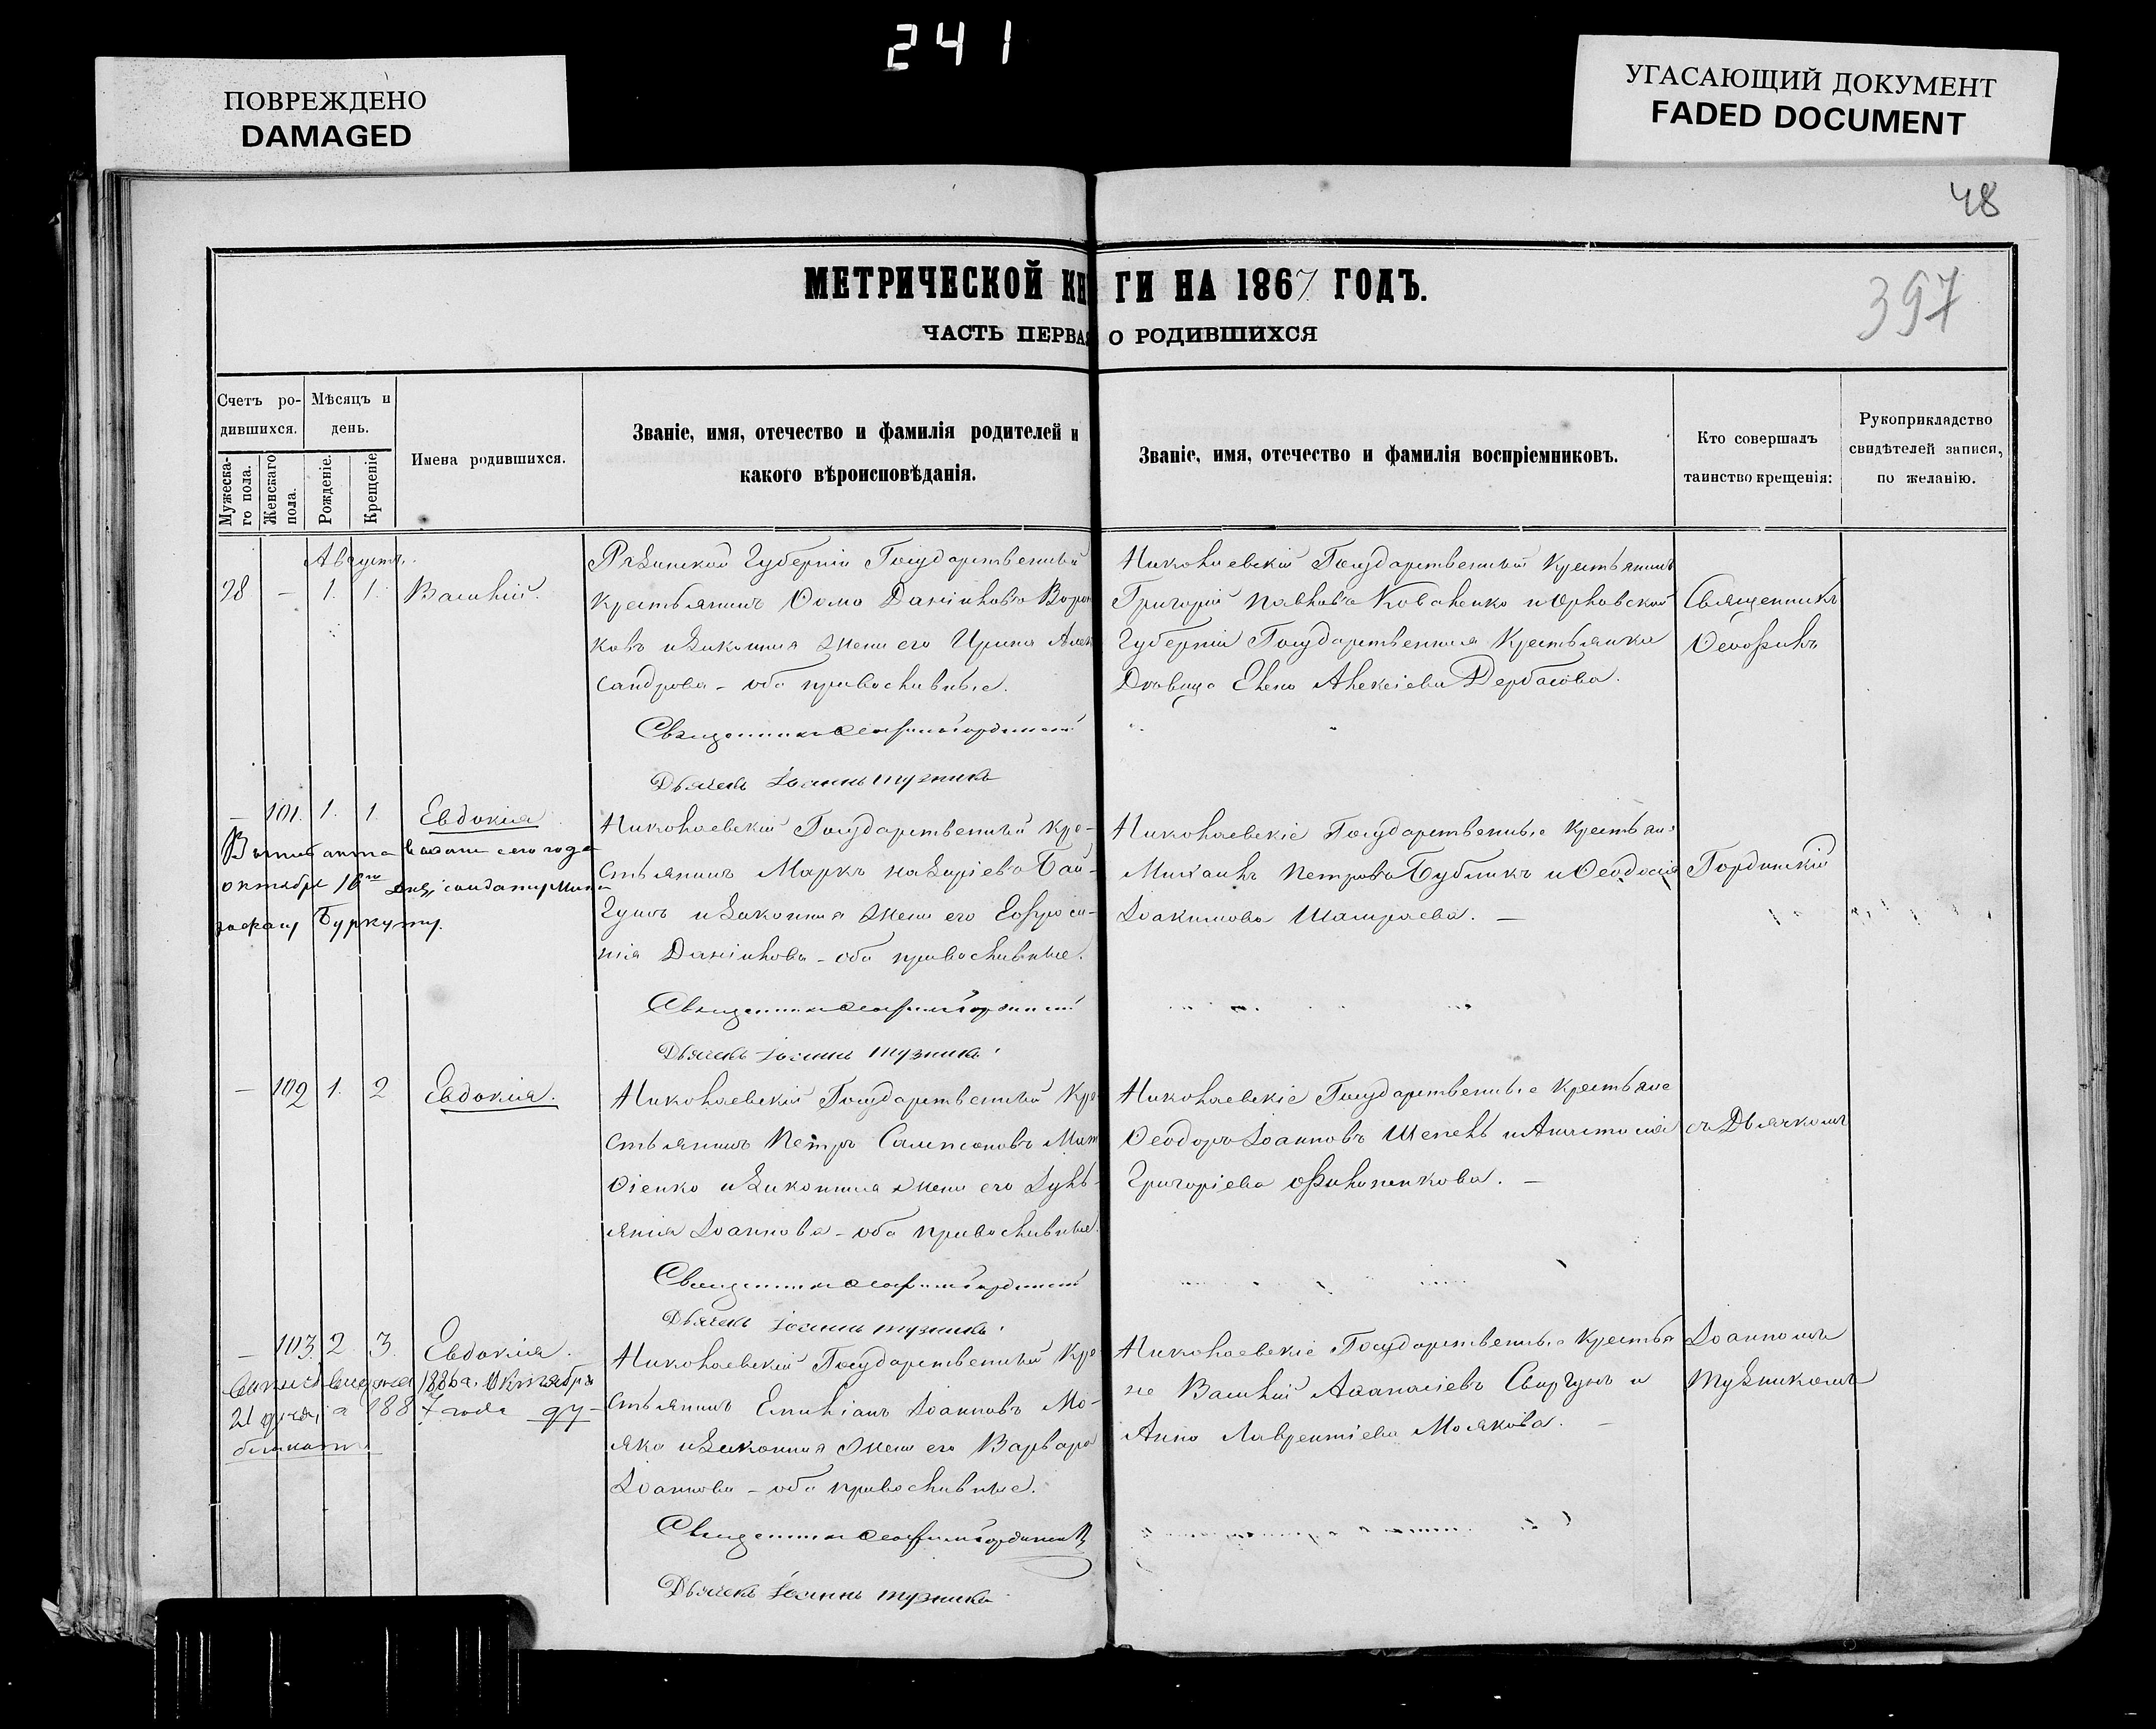 241
ПОВРЕЖДЕНО
DAMAGED
УГАСАЮЩИЙ ДОКУМЕНТ
FADED DOCUMENT
48
397
МЕТРИЧЕСКОЙ КНИГИ НА 1867 ГОДЪ.
ЧАСТЬ ПЕРВАЯ О РОДИВШИХСЯ
Счетъ ро-
дившихся.
Мужеска-
го пола.
Женскаго
пола.
Мѣсяцъ и
день.
Рожденіе.
Крещеніе
Имена родившихся.
Званіе, имя, отечество и фамилія родителей и
какого вѣроисповѣданія.
Званіе, имя, отечество и фамилія воспріемниковъ.
Кто совершалъ
таинство крещенія:
Рукоприкладство
свидѣтелей записи,
по желанію.
Августъ.
28 – 1. 1. Василій.
Рязанской Губерніи Государственный
крестьянинъ Ѳома Даніиловъ Ворон
ковъ и законная жена его Ирина Алек
сандрова – оба православные.
Священникъ Ѳеофилъ Гординскій
Дьячекъ Іоаннъ Тузникъ
Николаевскій Государственный крестьянинъ
Григорій Павловъ Коваленко и Орловской
Губерніи Государственная Крестьянка
Дѣвица Елена Алексіева Дербасова.
Священникъ
Ѳеофилъ
– 101. 1. 1. Евдокія
октября 16го
Буркуту.
Николаевскій Государственный кре-
стьянинъ Маркъ Назаріевъ Бай-
гушъ и законная жена его Евфроси-
нія Даніилова – оба православные.
Священникъ Ѳеофилъ Гординскій
Дьячекъ Іоаннъ Тузникъ.
Николаевскіе Государственные крестьян:
Михаилъ Петровъ Бубликъ и Ѳеодосія
Іоакимова Шамраева. –
Гординскій
– 102 1. 2 Евдокія.
Николаевскій Государственный Кре
стьянинъ Петръ Сампсоновъ Мат
ѳіенко и законная жена его Лукь-
янія Іоаннова – оба православные.
Священникъ Ѳеофилъ Гординскій
Дьячекъ Іоаннъ Тузникъ.
Николаевскіе Государственные крестьяне
Ѳеодоръ Іоанновъ Шепель и Анастасія
Григоріева Филоненкова. –
съ Дьячкомъ
– 103. 2. 3. Евдокія.
1886 г. Октября
21 дня, а 1887 года
Николаевскій Государственный Кре
стьянинъ Емиліанъ Іоанновъ Мо-
яка и законная жена его Варвара
Іоаннова – оба православные.
Священникъ Ѳеофилъ Гординскій
Дьячекъ Іоаннъ Тузникъ
Николаевскіе Государственные крестья
не Василій Аѳанасіевъ Свиргунъ и
Анна Лаврентіева Моякова. –
Іоанномъ
Тузникомъ